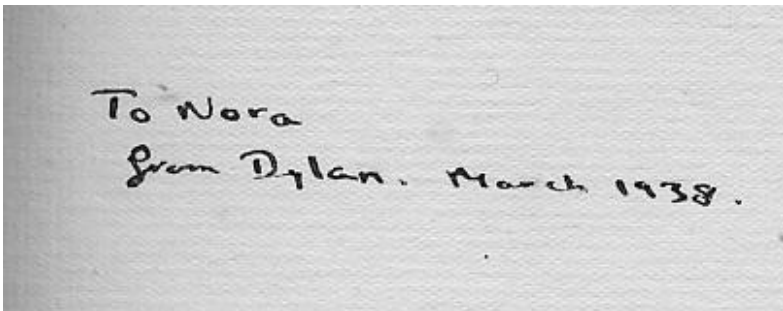 To Nora
from Dylan. March 1938.